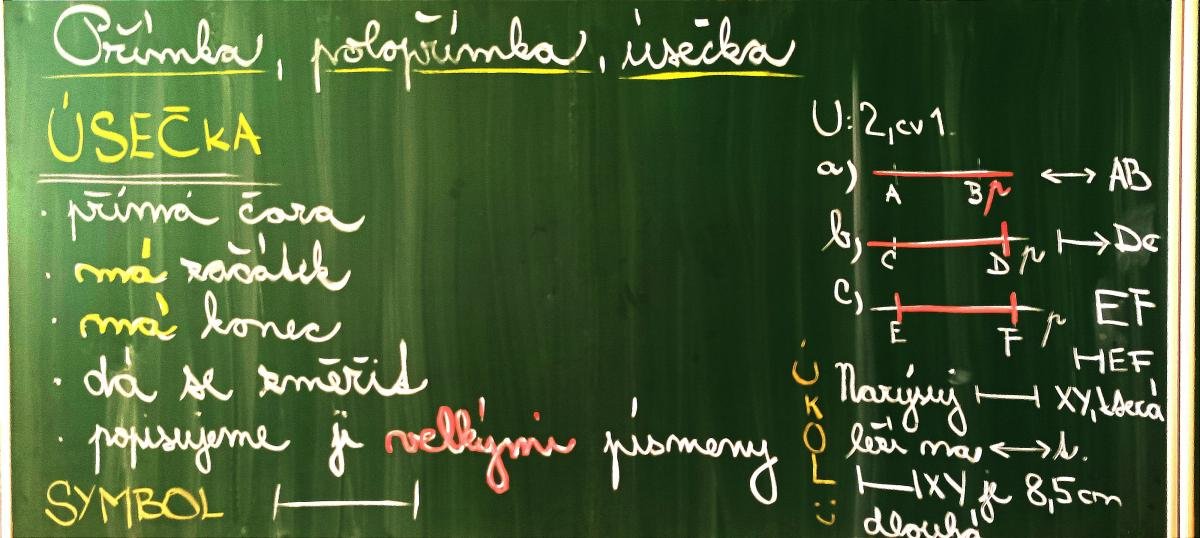 Přímka, polopřímka, úsečka
ÚSEČKA
· přímá čára
· má začátek
· má konec
· dá se změřit
· popisujeme ji velkými písmeny
SYMBOL |—|
U: 2, cv 1.
a) A B p ↔ AB
b) C D p |→ DC
c) E F p EF
|—| EF
ÚKOL :)
Narýsuj |—| XY, která
leží na ↔ t.
|—| XY je 8,5 cm
dlouhá